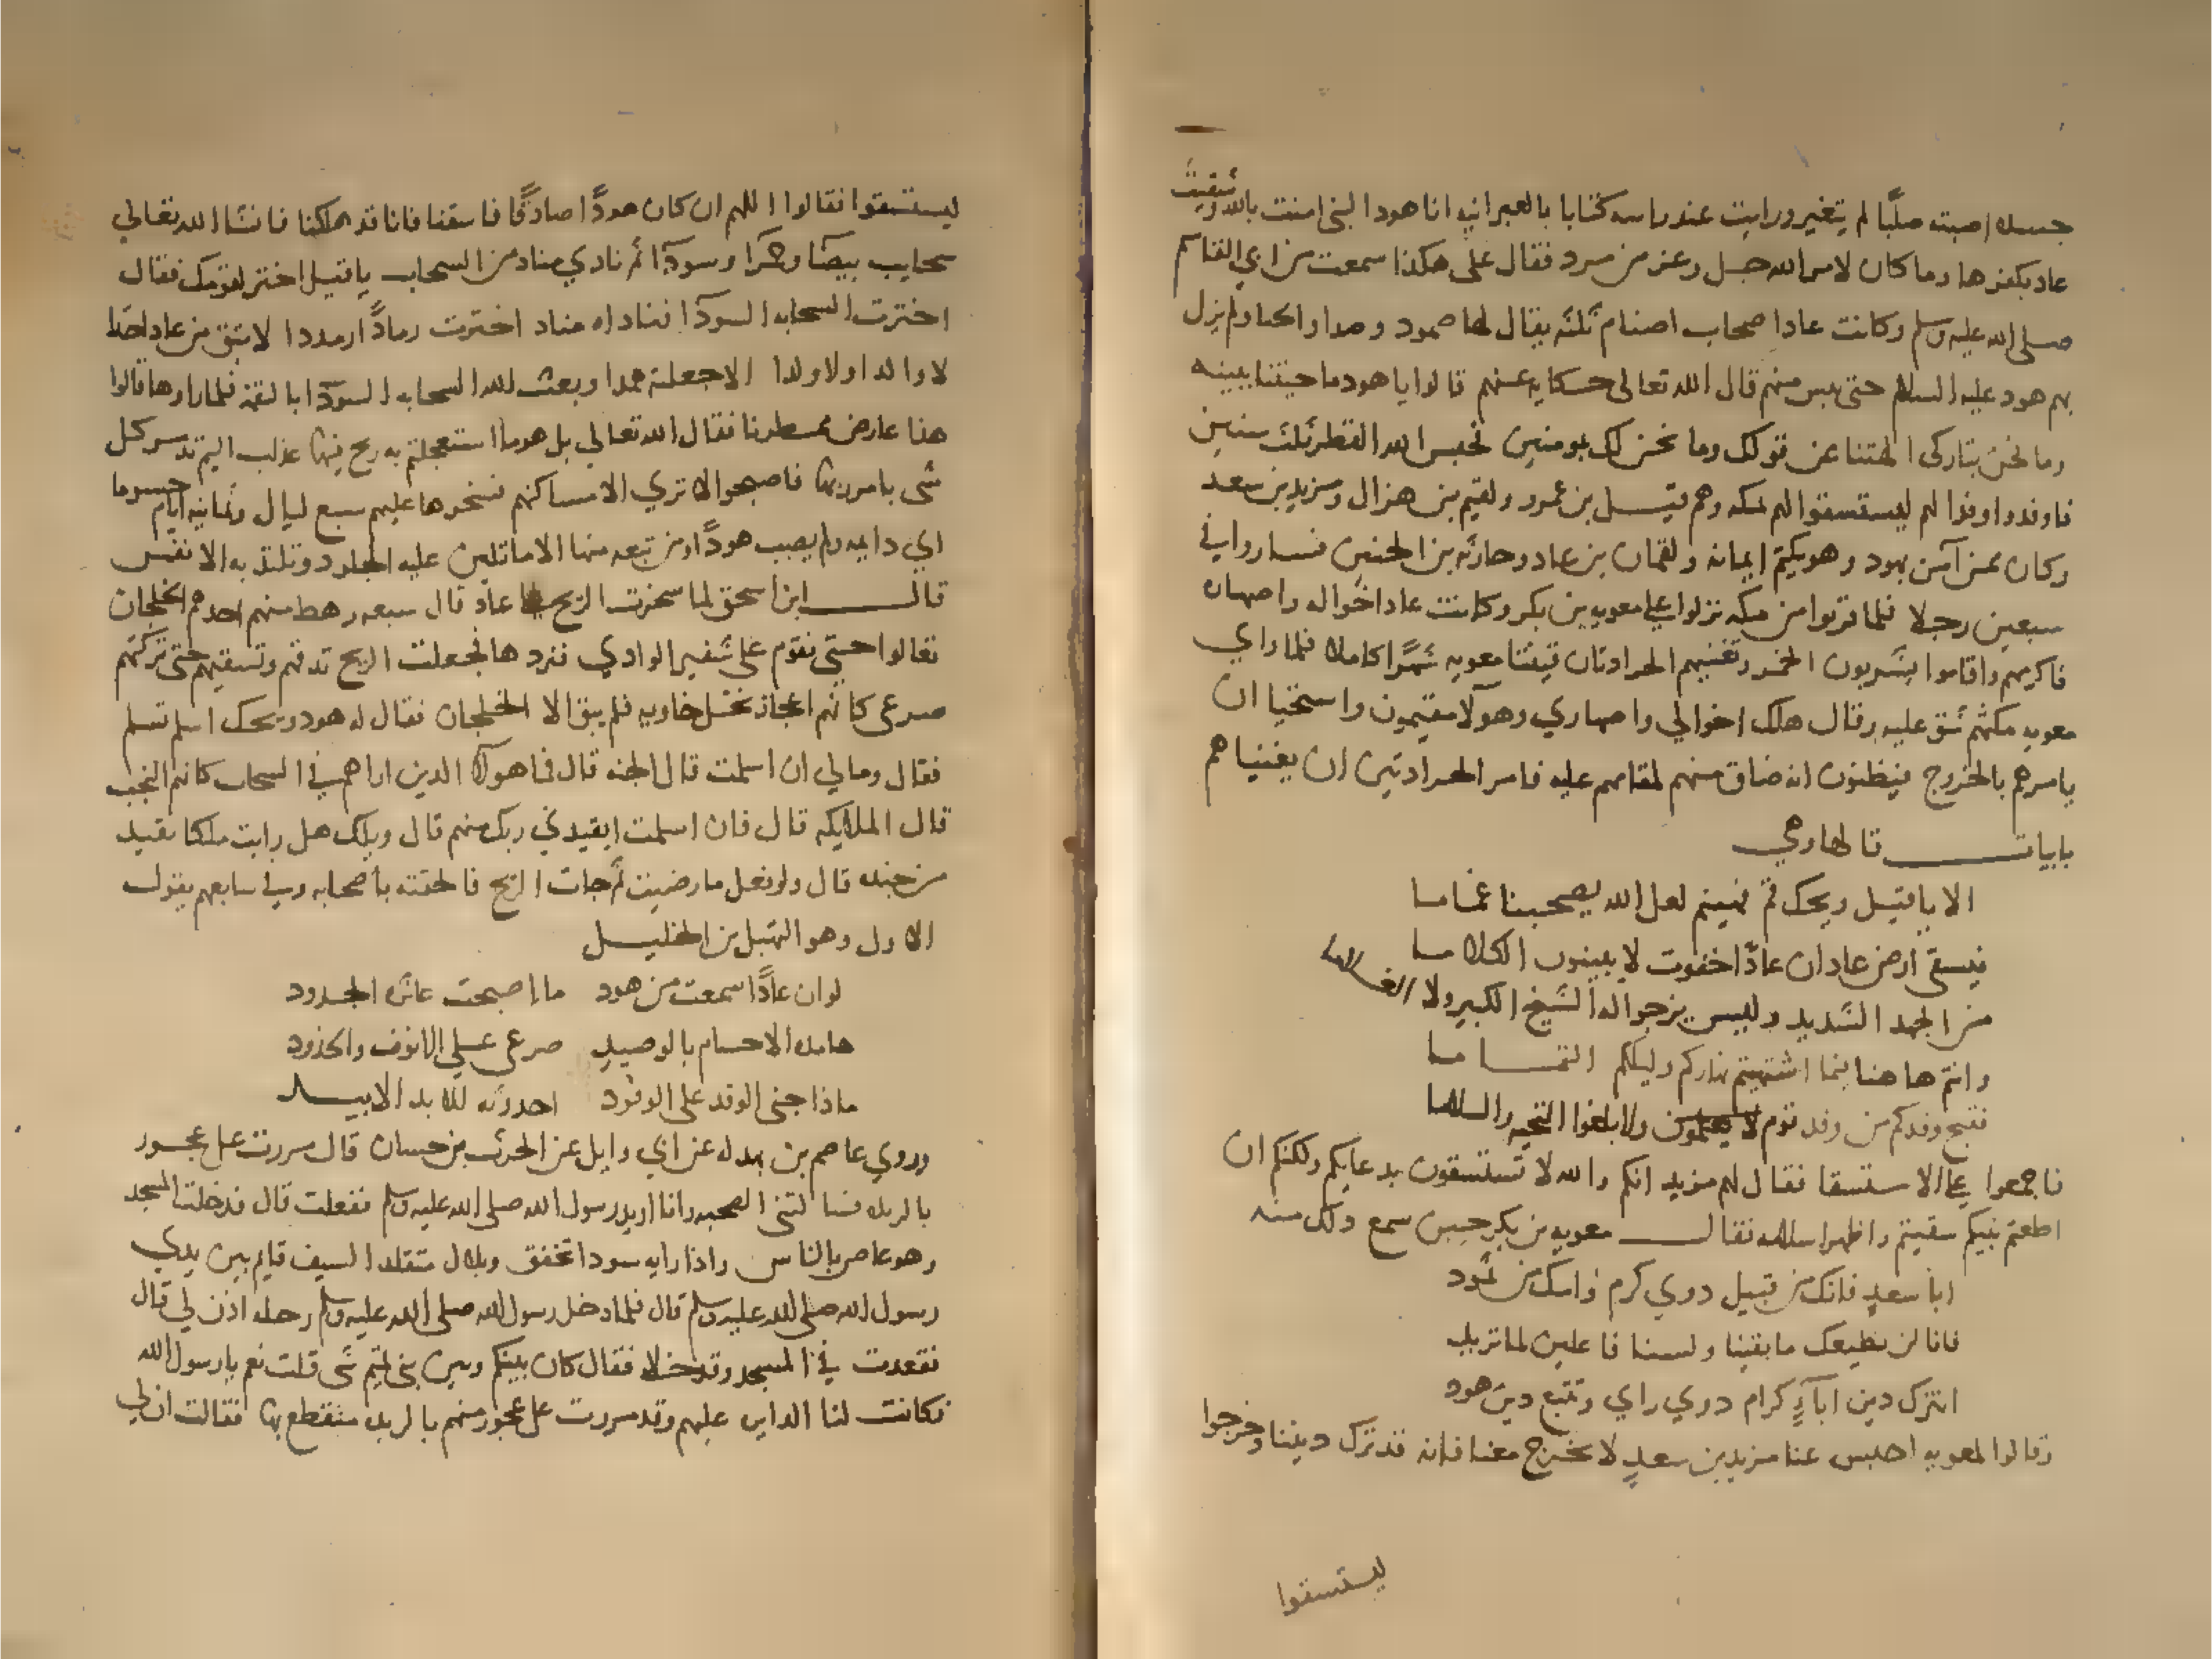 جسده اصبته صلبًا لم يتغير ورايت عند راسه كتابا بالعبرانيه انا هود النبى امنت بالله وشقيت
عاد بكفرها وما كان لامر الله جل وعز من مرد فقال على هكذا سمعت من ابي القاسم
صلى الله عليه وسلم وكانت عاد اصحاب اصنام ثلثه يقال لها صمود وصدا والهنا ولم يزل
بهم هود عليه السلام حتى يبس منهم قال الله تعالى حكايه عنهم قالوا يا هود ما جيتنا ببينه
وما نحن بتاركى الهتنا عن قولك وما نحن لك بمومنين فحبس الله القطر ثلث سنين
فاوفدوا وفدا لهم ليستسقوا لهم لمكه وهم قيل بن عمرو ولقيم بن هزال ومزيد بن سعد
وكان ممن آمن بهود وهو يكتم ايمانه ولقمان بن عاد وحارثه بن الحنين فساروا في
سبعين رجلا فلما قربوا من مكه نزلوا على معويه بن بكر وكانت عاد اخواله واصهاره
فاكرمهم واقاموا يشربون الخمر وتغنيهم الجرادتان قينتا معويه شهرًا كاملا فلما راي
معويه مكثهم شق عليه وقال هلك اخوالي واصهاري وهولا مقيمون واستحيا ان
يامرهم بالخروج فيظنون انه ضاق منهم لمقامهم عليه فامر الجرادتين ان يغنياهم
بابيات قالها وهي
الا يا قيل ويحك قم فهينم لعل الله يصحبنا غماما
فيسقى ارض عاد ان عادًا خفوت لا يبينون الكلاما
من الجهد الشديد وليس يرجوا له الشيخ الكبير ولا الغلاما
وانتم هاهنا بما اشتهيتم نهاركم وليلكم التماما
فقبح وفدكم من وفد قوم لا يعلمون ولا بلغوا التحيه والسلاما
فاجمعوا على الاستسقا فقال لهم مزيد انكم والله لا تستسقون بدعايكم ولكنكم ان
اطعتم نبيكم سقيتم واظهر اسلامه فقال معويه بن بكر حين سمع ذلك منه
ابا سعد فانك من قبيل ذوي كرم وامك من ثمود
فانا لن نطيعك ما بقينا ولسنا فاعلين لما تريد
انترك دين اباءٍ كرام ذوي راي ونتبع دين هود
وقالوا لمعويه احبس عنا مزيد بن سعدٍ لا يخرج معنا فانه قد ترك ديننا وخرجوا
ليستسقوا
ليستسقوا فقالوا اللهم ان كان هودًا صادقًا فاسقنا فانا قد هلكنا فانشا الله تعالي
سحايب بيضًا وحمرًا وسودًا ثم نادي مناد من السحاب يا قيل اختر لقومك فقال
اخترت السحابه السودا فناداه مناد اخترت رمادًا رمددا لا تبق من عاد احدا
لا والدا ولا ولدا الا جعلته همدا وبعث الله السحابه السودا بالنقمه فلما راوها قالوا
هذا عارض ممطرنا فقال الله تعالي بل هو ما استعجلتم به ريح فيها عذاب اليم تدمر كل
شى بامر ربها فاصبحوا لا تري الا مساكنهم فسخرها عليهم سبع ليال وثمانيه ايام حسوما
اي دايمه ولم يصب هودًا ومن تبعه منها الا ما تلين عليه الجلود وتلتذ به الانفس
قال ابن اسحق لما سخرت الريح على عاد قال سبعه رهط منهم احدهم الخلجان
تعالوا حتى نقوم على شفير الوادي فنردها فجعلت الريح تدفهم وتسقيهم حتى تركتهم
صرعى كانهم اعجاز نخل خاويه فلم يبق الا الخلجان فقال له هود ويحك اسلم تسلم
فقال ومالي ان اسلمت قال الجنه قال فما هولا الذين اراهم في السحاب كانهم البخت
قال الملايكه قال فان اسلمت ايقيدني ربك منهم قال ويلك هل رايت ملكا يقيد
من جنده قال ولو فعل ما رضيت ثم جات الريح فالحقته باصحابه وفي سابعهم يقول
الاول وهو الهيل بن الخليل
لو ان عادًا سمعت من هود ما اصبحت عاثر الجدود
هامده الاجسام بالوصيدِ صرعى على الانوف والخدود
ماذا جنى الوفد على الوفود احدوثه للابد الابيد
وروي عاصم بن بهدله عن ابي وايل عن الحرث بن حسان قال مررت على عجوز
بالربذه فسالتنى الصحبه وانا اريد رسول الله صلى الله عليه وسلم ففعلت قال فدخلنا المسجد
وهو غاص بالناس واذا رايه سودا تخفق وبلال متقلد السيف قايم بين يدي
رسول الله صلى الله عليه وسلم قال فلما دخل رسول الله صلى الله عليه وسلم رحله اذن لي قال
فقعدت في المسجد وقد دخلا فقال كان بينكم وبين بنى تميم شى قلت نعم يا رسول الله
فكانت لنا الدايره عليهم وقد مررت على عجوز منهم بالربذه منقطع بها فقالت ان لي